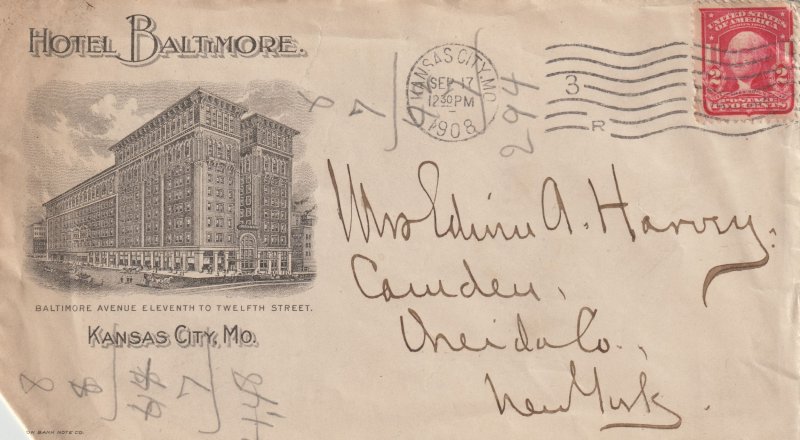 HOTEL BALTIMORE.
KANSAS CITY, MO.
SEP 17
12 30 PM
1908
3
R
UNITED STATES
OF AMERICA
2 2
POSTAGE
TWO CENTS
8
7
294
Mrs Edwin A. Harvey.
Camden,
Oneida Co.,
New York.
BALTIMORE AVENUE ELEVENTH TO TWELFTH STREET.
KANSAS CITY, MO.
8
7
1,48
ON BANK NOTE CO.